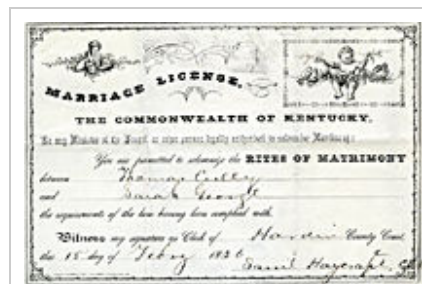 MARRIAGE LICENSE.
THE COMMONWEALTH OF KENTUCKY,
To any Minister of the Gospel or other person legally authorized to solemnize Matrimony:
You are permitted to solemnize the RITES OF MATRIMONY
between Thomas
and Sarah
the requirements of the law having been complied with.
Witness my signature as Clerk of Hardin County Court,
this 15 day of Feby 18
Saml Haycraft, Clk